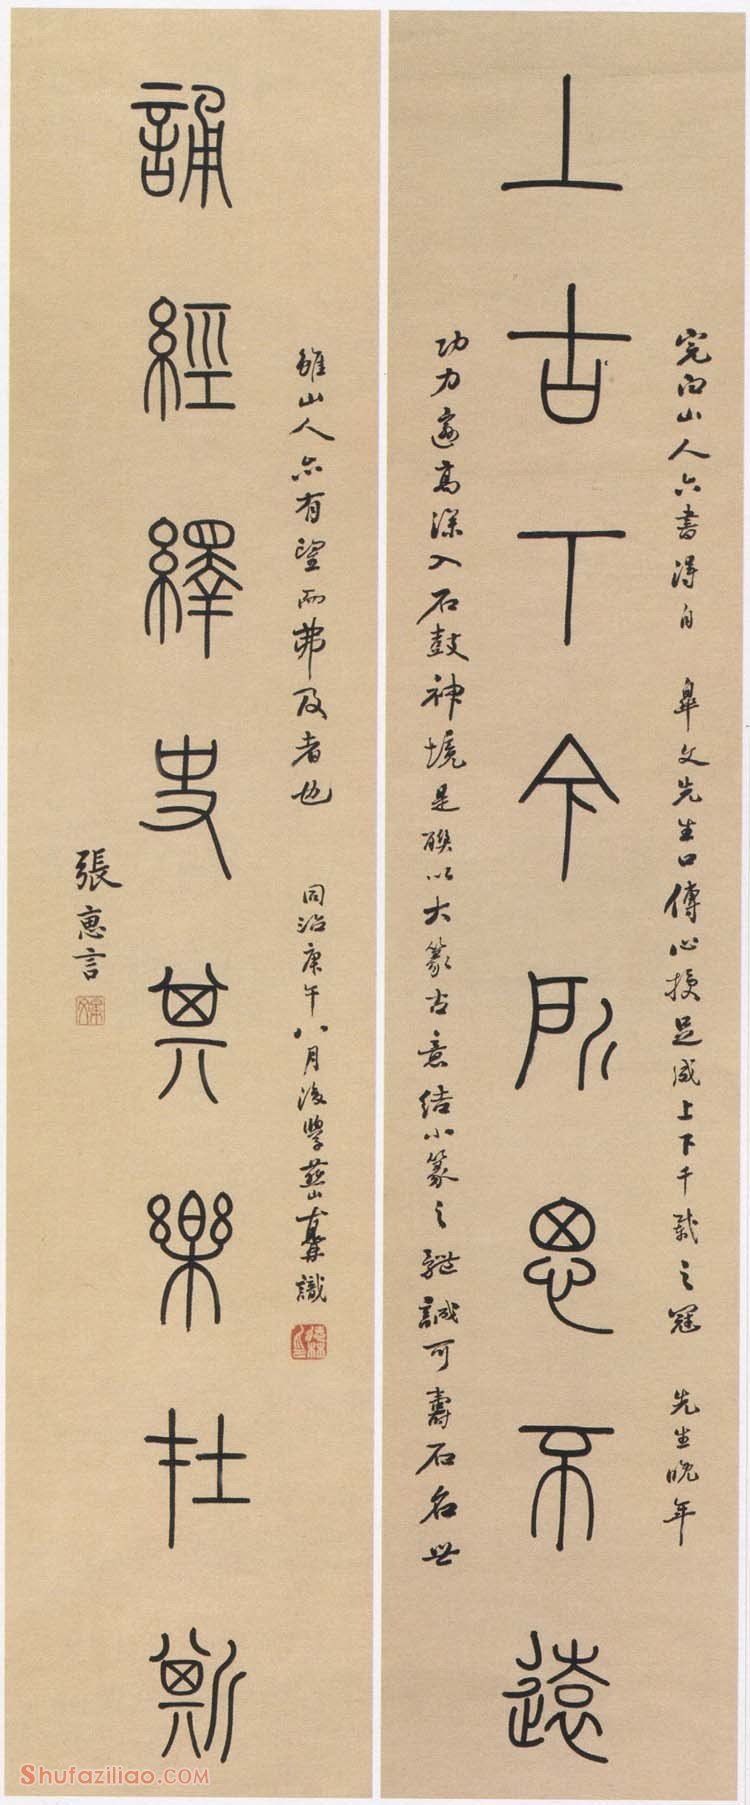 完白山人六書得自 皋文先生口傳心授足成上下千載之冠 先生晚年
上古下今所思不遠
功力邃高深入石鼓神境是聯以大篆古意結小篆之體誠可壽石名世
雖山人亦有望而弗及者也 同治庚午八月後學 識
誦經繹史其樂在斯
張惠言
Shufaziliao.COM